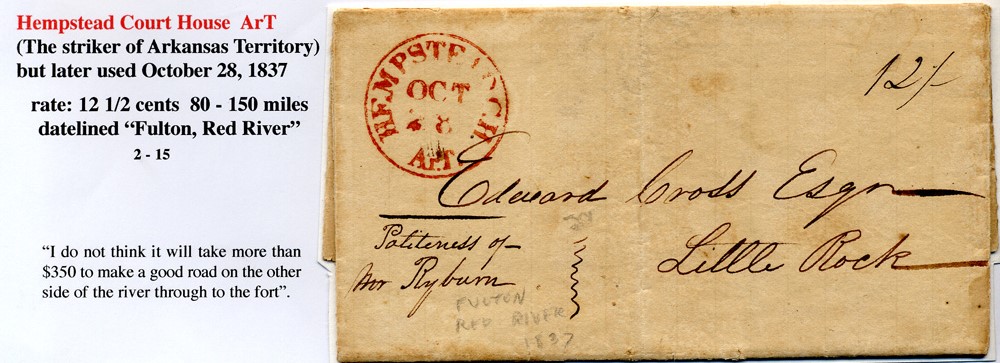 Hempstead Court House ArT
(The striker of Arkansas Territory)
but later used October 28, 1837
rate: 12 1/2 cents 80 - 150 miles
datelined “Fulton, Red River”
2 - 15
“I do not think it will take more than
$350 to make a good road on the other
side of the river through to the fort”.
HEMPSTEAD C.H.
OCT
28
Ar.T.
12/-
Edward Cross Esqr
Little Rock
Politeness of
Mr Ryburn
FULTON
RED RIVER
1837